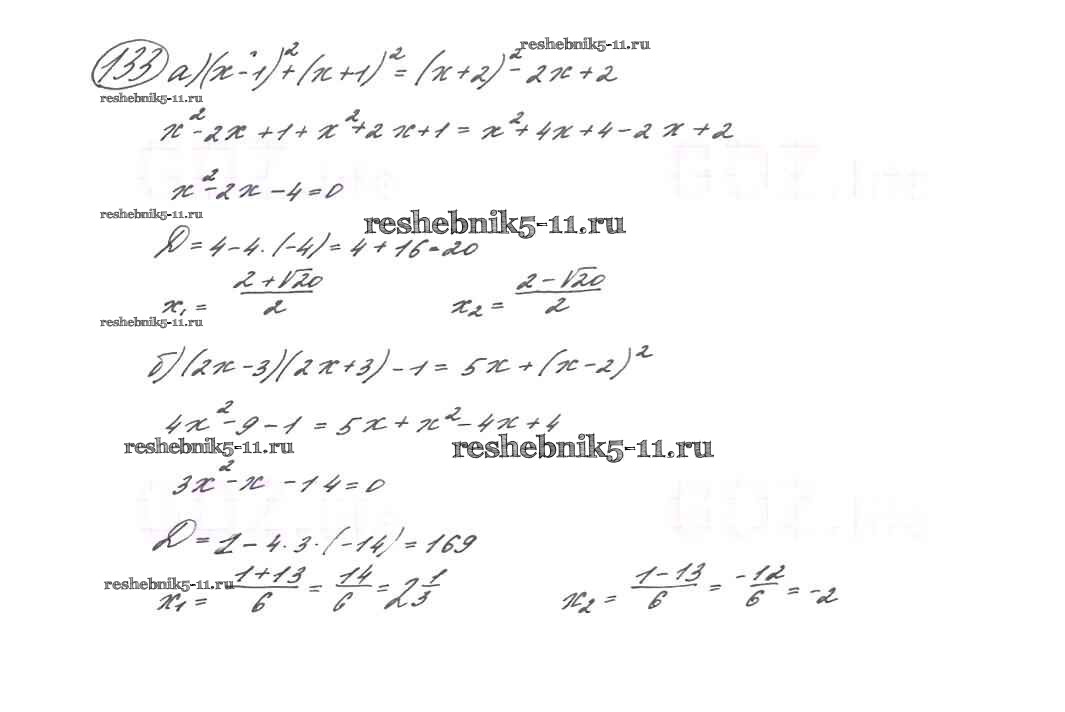 reshebnik5-11.ru
133 а) (x-1)² + (x+1)² = (x+2)² - 2x + 2
reshebnik5-11.ru
x² - 2x + 1 + x² + 2x + 1 = x² + 4x + 4 - 2x + 2
x² - 2x - 4 = 0
reshebnik5-11.ru
reshebnik5-11.ru
D = 4 - 4 · (-4) = 4 + 16 = 20
x₁ = (2 + √20)/2 x₂ = (2 - √20)/2
reshebnik5-11.ru
б) (2x - 3)(2x + 3) - 1 = 5x + (x - 2)²
4x² - 9 - 1 = 5x + x² - 4x + 4
reshebnik5-11.ru reshebnik5-11.ru
3x² - x - 14 = 0
D = 1 - 4 · 3 · (-14) = 169
reshebnik5-11.ru
x₁ = (1 + 13)/6 = 14/6 = 2 1/3 x₂ = (1 - 13)/6 = -12/6 = -2